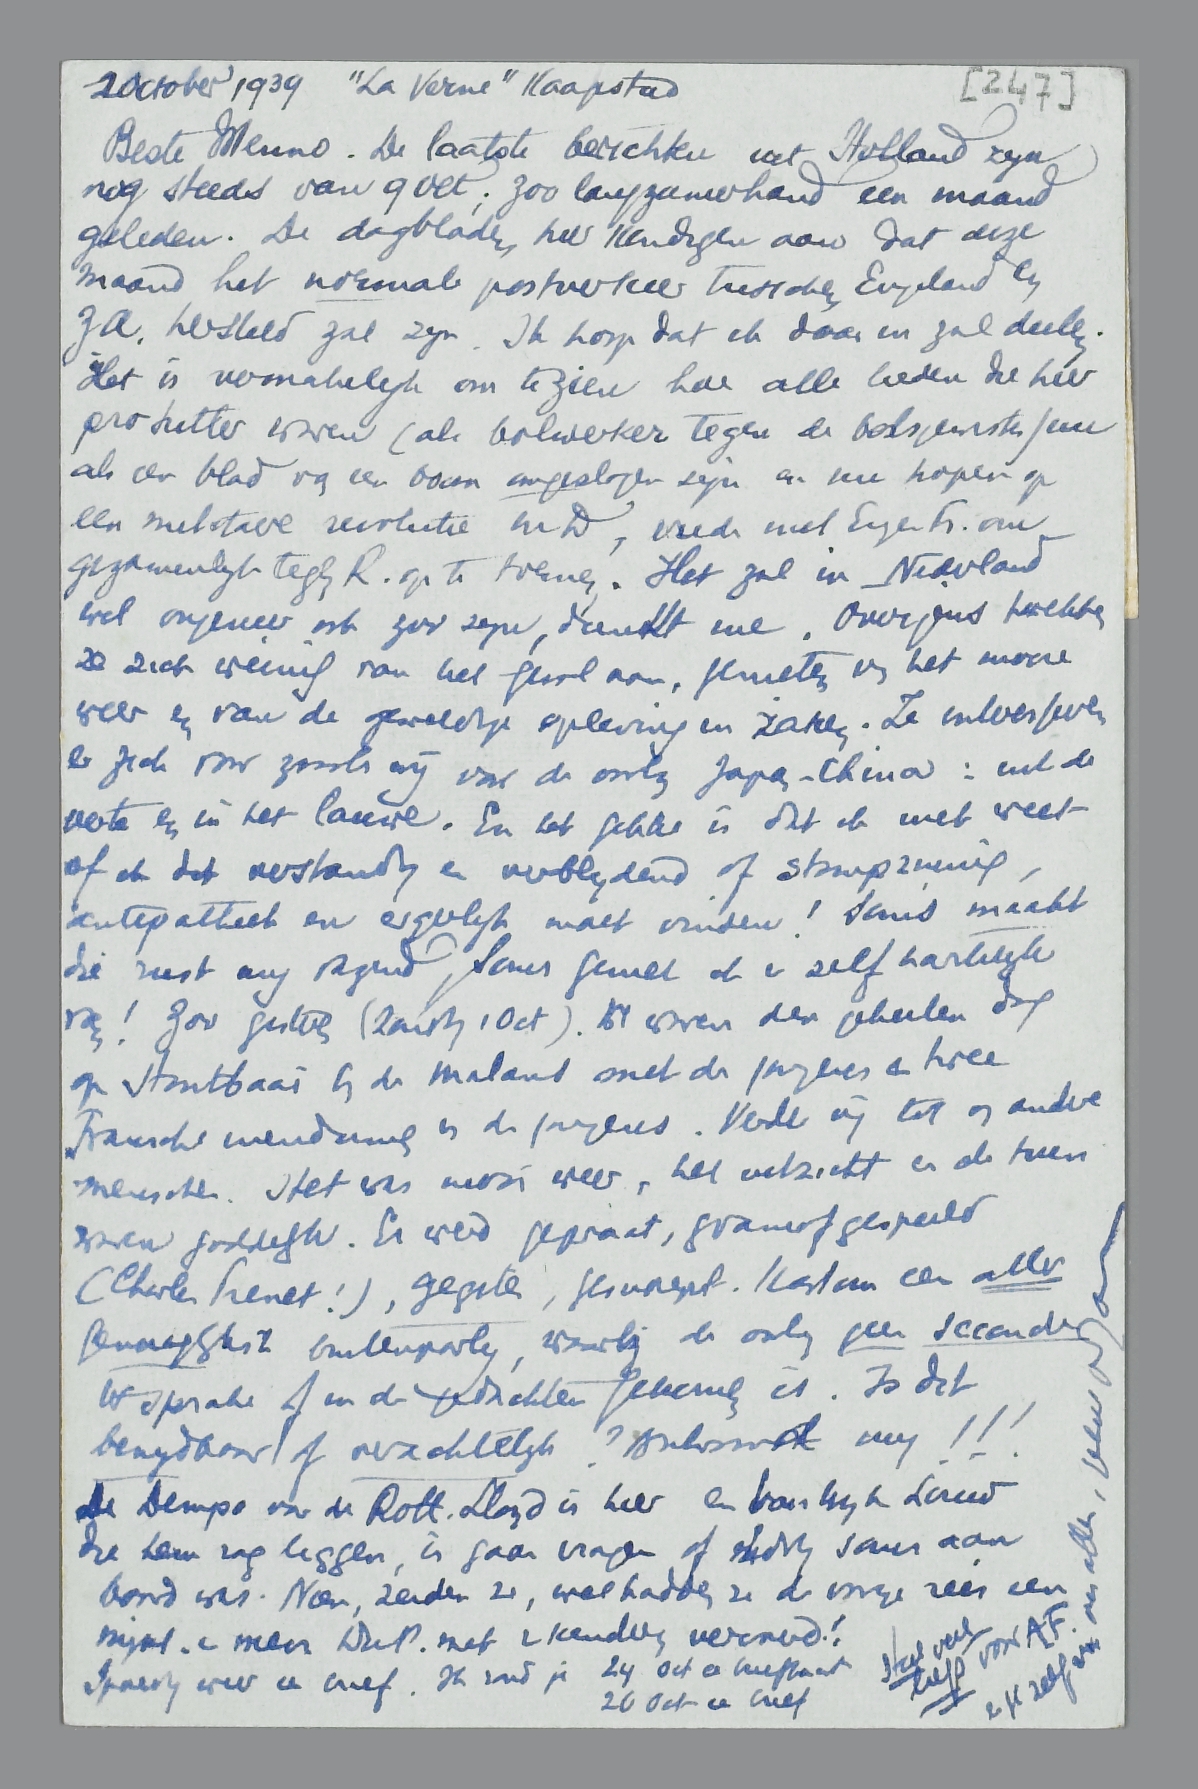 2 October 1939 "La Verne" Kaapstad
[247]
Beste Menno. De laatste berichten uit Holland zijn
nog steeds van 9 Oct; zoo langzamerhand een maand
geleden. De dagbladen hier kondigen aan dat deze
maand het normale postverkeer tusschen Engeland en
Z.A. hersteld zal zijn. Ik hoop dat ik daar in zal deelen.
Het is vermakelijk om te zien hoe alle lieden die hier
pro hitler waren (als bolwerker tegen de bolsjewisten) nu
als een blad v.e. een boom omgeslagen zijn en nu hopen op
een militaire revolutie in D, vrede met Eng en Fr. om
gezamenlijk tegen R. op te treden. Het zal in Nederland
wel ongeveer ook zoo zijn, dunkt me. Overigens trekken
ze zich weinig van het geval aan, genieten v. het mooie
weer en van de geweldige opleving in zaken. Ze interesseeren
er zich voor zooals wij voor de oorlog Japan-China: uit de
verte en in het lauwe. En het gekke is dat ik niet weet
of ik dat verstandig en verblijdend of stompzinnig,
antipathiek en ergerlijk moet vinden! Soms maakt
die rust mij razend, soms geniet ik er zelf hartelijk
van! Zoo gisteren (Zondag 1 Oct). We waren den geheelen dag
op Houtbaai bij de Malans met de jongens en twee
Fransche vrienden v. de jongens. Verder vrij veel andre
menschen. Het was mooi weer, het uitzicht en de tuin
waren goddelijk. Er werd gepraat, gramof gespeeld
(Charles Trenet!), gegeten, gesnoept. Kortom een aller
genoegelijkst buitenpartij, waarbij de oorlog geen seconde
ter sprake of in de gedachten gekomen is. Is dit
benijdbaar of verachtelijk? Antwoordt mij!!!
De Dempo van de Rott. Lloyd is hier en van Wyk Louw
die hem zag liggen, is gaan vragen of soms aan
boord was. Neen, zeiden ze, wel hadden ze de vorige reis een
mijnh. en mevr. met 2 kinderen vervoerd!
Spoedig weer een brief. Ik zond je 24 Oct een briefkaart
26 Oct een brief
Heel veel liefs voor A.F.
en je zelf van ons allen,